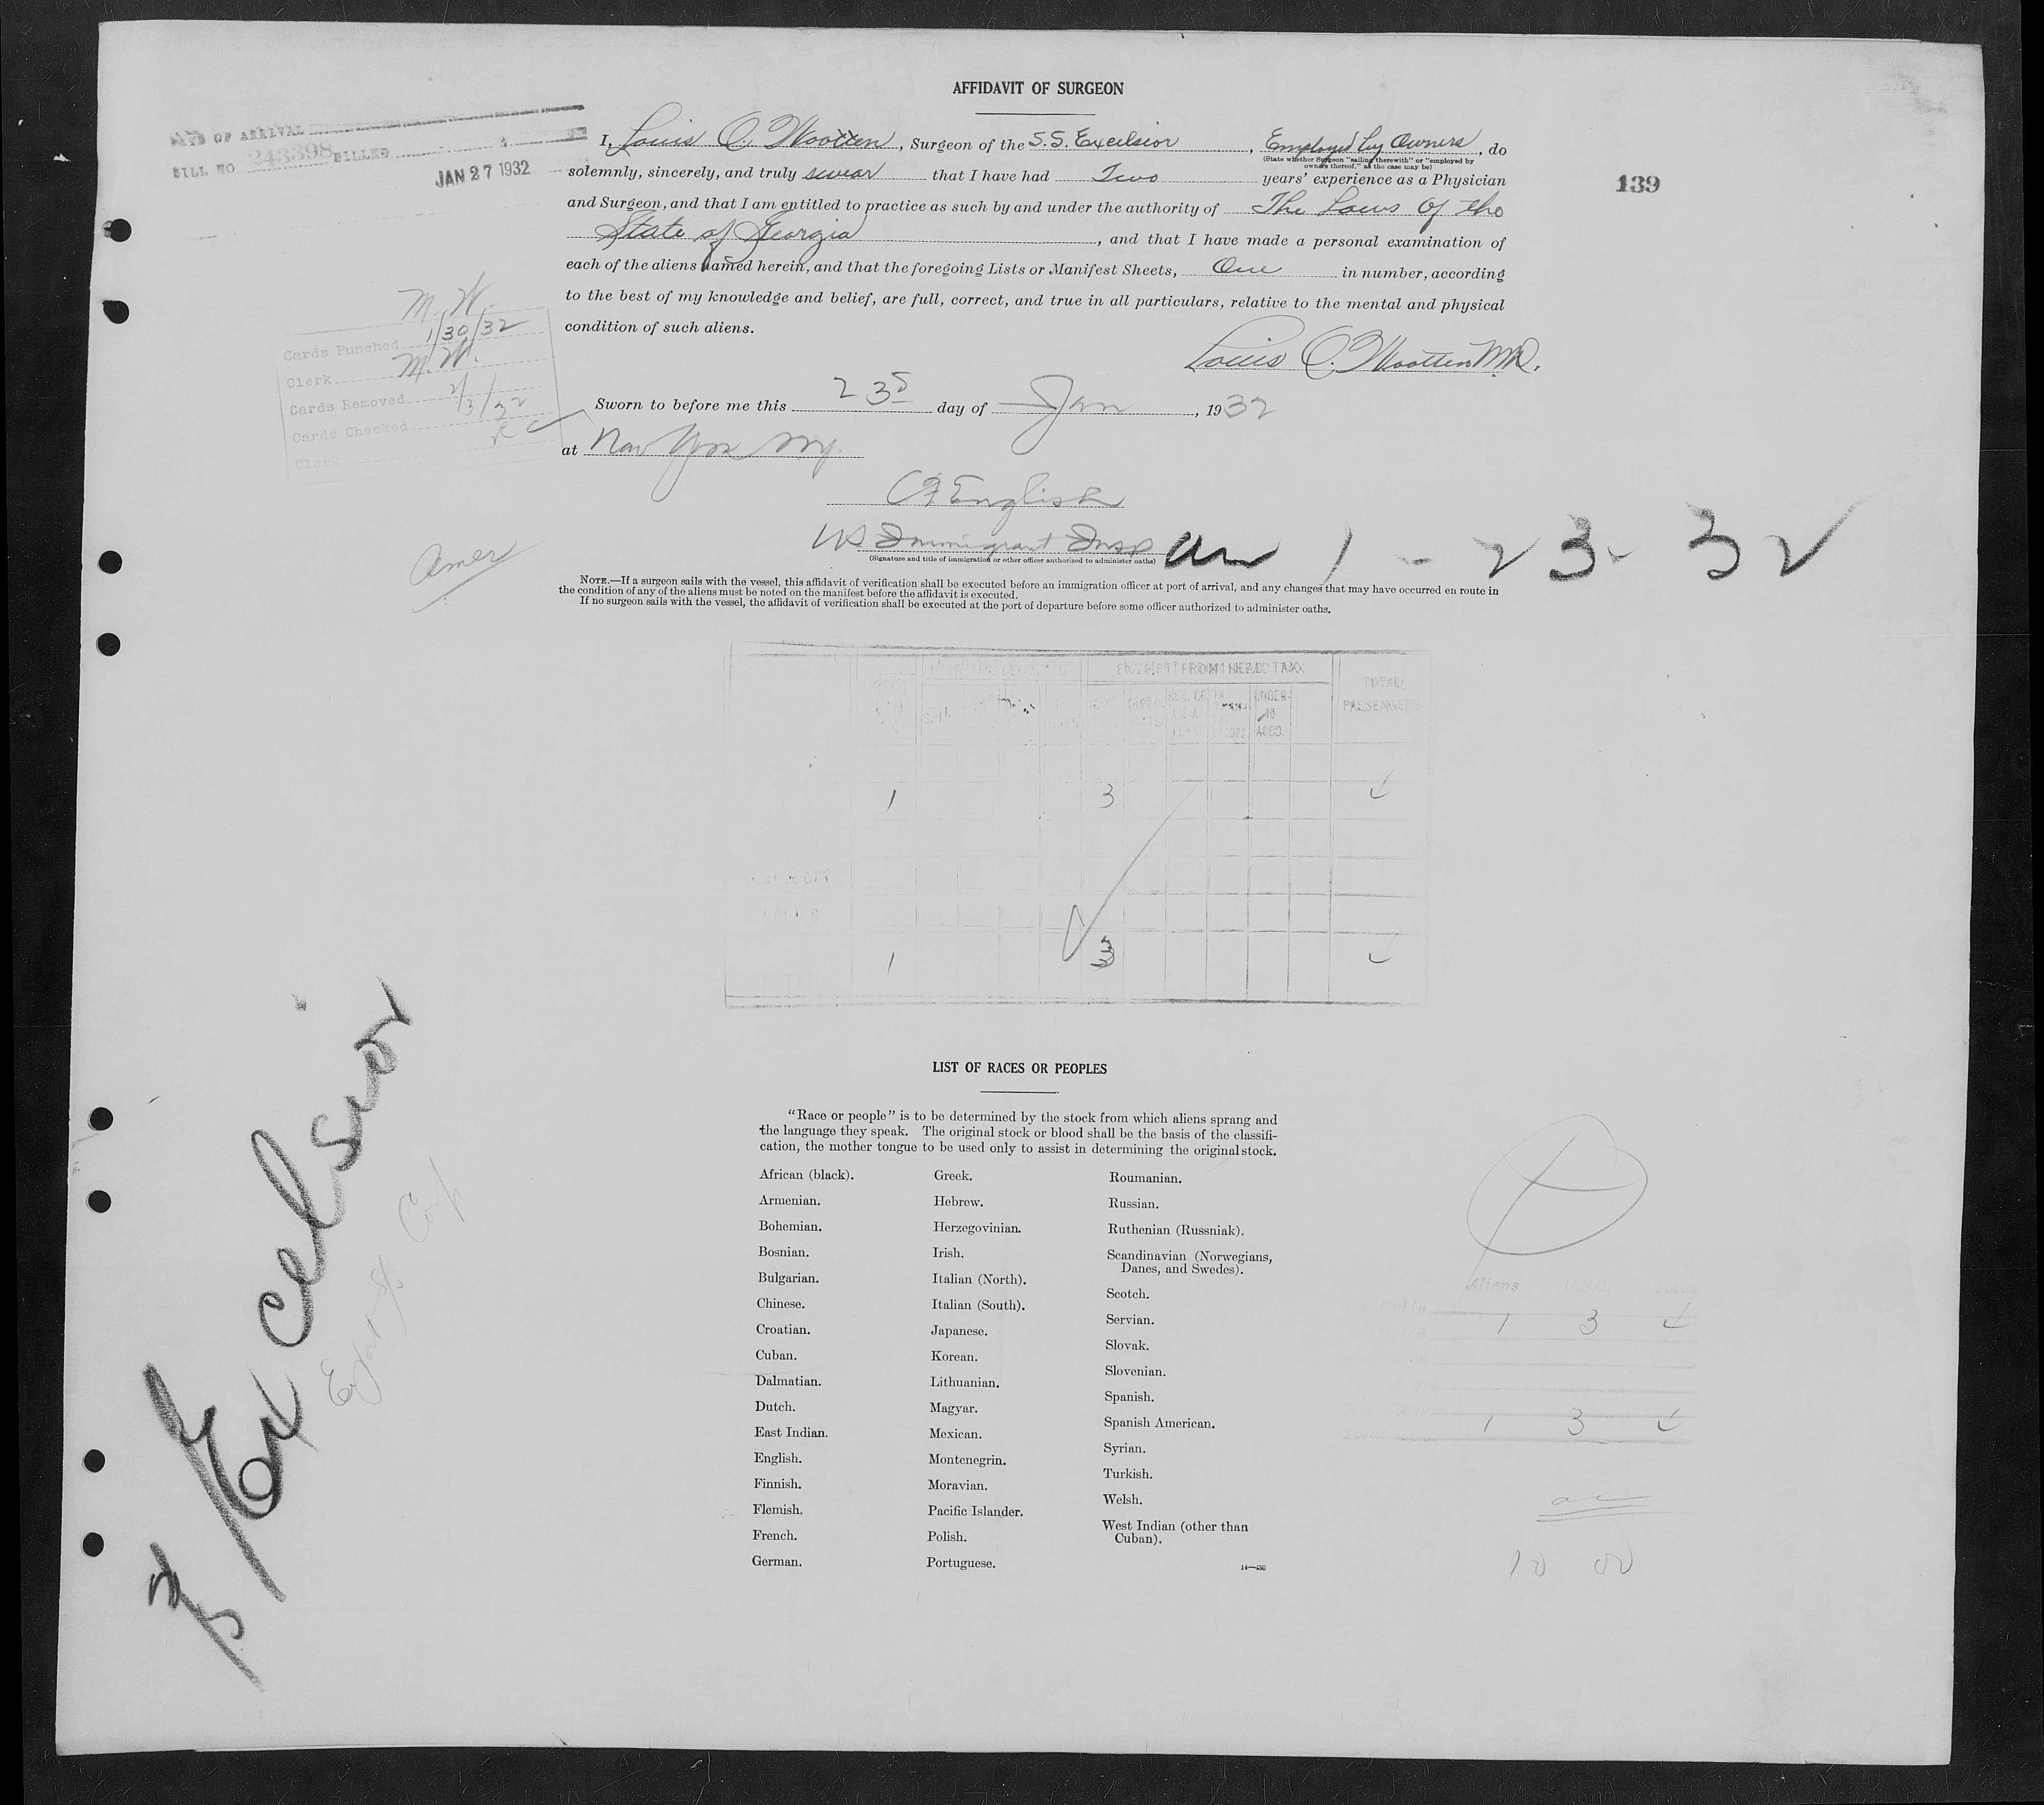 AFFIDAVIT OF SURGEON
DATE OF ARRIVAL
BILL NO 243398 BILLED
JAN 27 1932
139
I, Louis O. Wootten, Surgeon of the S.S. Excelsior, Employed by Owners, do
(State whether Surgeon "sailing therewith" or "employed by
owners thereof," as the case may be)
solemnly, sincerely, and truly swear that I have had Two years' experience as a Physician
and Surgeon, and that I am entitled to practice as such by and under the authority of The Laws Of the
State of Georgia, and that I have made a personal examination of
each of the aliens named herein, and that the foregoing Lists or Manifest Sheets, One in number, according
to the best of my knowledge and belief, are full, correct, and true in all particulars, relative to the mental and physical
condition of such aliens.
Louis O. Wootten M.D.
M. W.
Cards Punched 1/30/32
Clerk M. W.
Cards Removed 2/3/32
Cards Checked
Clerk
Sworn to before me this 23d day of Jan, 1932
at New York NY.
CF English
US Immigrant Insp
(Signature and title of immigration or other officer authorized to administer oaths)
Arr 1-23-32
Amer
NOTE.—If a surgeon sails with the vessel, this affidavit of verification shall be executed before an immigration officer at port of arrival, and any changes that may have occurred en route in
the condition of any of the aliens must be noted on the manifest before the affidavit is executed.
If no surgeon sails with the vessel, the affidavit of verification shall be executed at the port of departure before some officer authorized to administer oaths.
EXEMPT FROM HEAD TAX
TOTAL
PASSENGERS
UNDER
16
ACCD.
1 3 4
1 3 4
LIST OF RACES OR PEOPLES
"Race or people" is to be determined by the stock from which aliens sprang and
the language they speak. The original stock or blood shall be the basis of the classifi-
cation, the mother tongue to be used only to assist in determining the original stock.
African (black).
Armenian.
Bohemian.
Bosnian.
Bulgarian.
Chinese.
Croatian.
Cuban.
Dalmatian.
Dutch.
East Indian.
English.
Finnish.
Flemish.
French.
German.
Greek.
Hebrew.
Herzegovinian.
Irish.
Italian (North).
Italian (South).
Japanese.
Korean.
Lithuanian.
Magyar.
Mexican.
Montenegrin.
Moravian.
Pacific Islander.
Polish.
Portuguese.
Roumanian.
Russian.
Ruthenian (Russniak).
Scandinavian (Norwegians,
Danes, and Swedes).
Scotch.
Servian.
Slovak.
Slovenian.
Spanish.
Spanish American.
Syrian.
Turkish.
Welsh.
West Indian (other than
Cuban).
14—430
Excelsior
Export SS Corp
Aliens U.S.C. Total
1 3 4
1 3 4
10 00